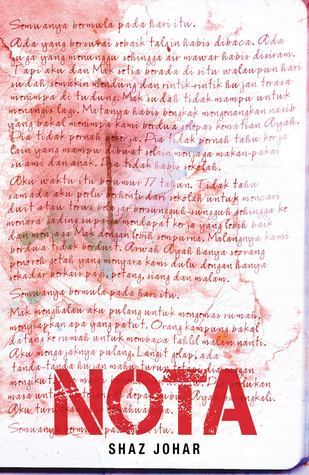 Semuanya bermula pada hari itu.
Ada yang bersurai sebaik talqin habis dibaca. Ada
juga yang menunggu sehingga air mawar habis disiram.
Tapi aku dan Mak setia berada di situ walaupun hari
sudah semakin mendung dan rintik-rintik hujan terasa
menimpa di tudung. Mak sudah tidak mampu untuk
menangis lagi. Matanya habis bengkak mengenangkan nasib
yang bakal menimpa kami berdua selepas kematian Ayah.
Dia tidak pernah bekerja. Dia tidak pernah tahu kerja
lain yang mampu dibuat selain menjaga makan-pakai
suami dan anak. Dia tidak habis sekolah.
Aku waktu itu berumur 17 tahun. Tidak tahu
samada aku perlu berhenti dari sekolah untuk mencari
duit atau terus belajar bersungguh-sungguh sehingga ke
menara gading supaya mendapat kerja yang lebih baik
dan menjaga Mak dengan lebih sempurna. Malangnya kami
berdua tidak berduit. Arwah Ayah hanya seorang
penoreh getah yang menyara kami dulu dengan hanya
sekadar berkais pagi, petang, siang dan malam.
Semuanya bermula pada hari itu.
Mak menghalau aku pulang untuk mengemas rumah,
menyiapkan apa yang patut. Orang kampung bakal
datang ke rumah untuk membaca tahlil malam nanti.
Aku mengajaknya pulang. Langit gelap, ada
tanda-tanda hujan
mengikut
mara
Aku
Semuanya bermula pada
NOTA
SHAZ JOHAR